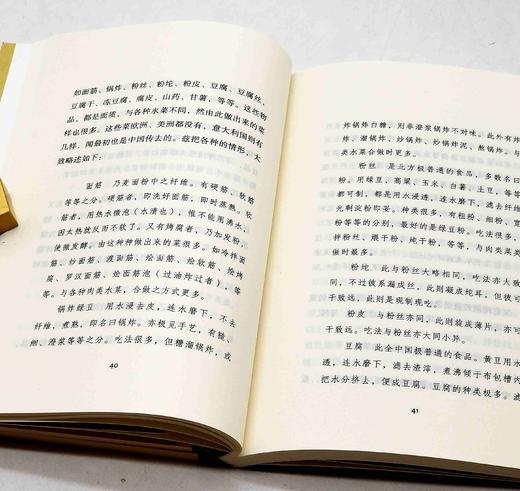 如面筋、锅炸、粉丝、粉坨、粉皮、豆腐、豆腐丝、
豆腐干、冻豆腐、腐皮、山药、甘薯，等等。这些物
品，都是面质，与各种水菜不同，然由此做出来的菜
样也很多。这些菜欧洲、美洲都没有，意大利国则有
几样，闻最初也是中国传去的。兹把各种的情形，大
致略述如下：
面筋 乃麦面粉中之纤维。有硬筋、软筋
等等之分。硬筋者，即洗好面筋，即时使用。软
筋者，用热水微泡（水渍也），惟不能用沸水，
因大热就反而不软了。又有烤腐者，乃加发粉，
使微发酵。由这种种做出来的菜很多。如冷拌面
筋、炒面筋、渡面筋、烩面筋、烩软筋、烩烤
腐、罗汉面筋、烩面筋泡（过油炸过者），等
等。与各种肉类水菜，合做之方式更多。
锅炸绿豆 用水浸去皮，连水磨下，不去
纤维，煮熟，即名曰锅炸。亦极见手艺，有糙、
细、澄浆等等之分。吃法很多，但糖溜锅炸，或
40
炸锅炸白糖，则非澄浆锅炸不对味。此外有炸
炸、溜锅炸、炒锅炸、炒锅炸泥、熬锅炸。与
类水菜合做时更多。
粉丝 是北方极普通的食品，多数名曰
粉。用绿豆、高粱、玉米、白薯、土豆，等等
都可制，都是用水浸过，连水磨下，滤去纤
光剩淀粉即妥。种类很多，有粗粉、细粉、宽
粉等等的分别，最好的是绿豆粉。吃法很多，
拌粉丝、煨干粉、炖干粉，等等，与肉类菜类
做时最多。
粉坨 此与粉丝大略相同，吃法亦大同
不同，不过彼系漏成丝，此则凝成坨耳，但彼可
干致远，此则是现制现吃。
粉皮 与粉丝亦同，此则旋成薄片，亦可
干致远。吃法与粉丝亦大同小异。
豆腐 此全中国极普通的食品。黄豆用水
透，连水磨下，滤去渣滓，煮沸倾于布包槽内
把水分挤去，便成豆腐。豆腐的种类极多。滤
41